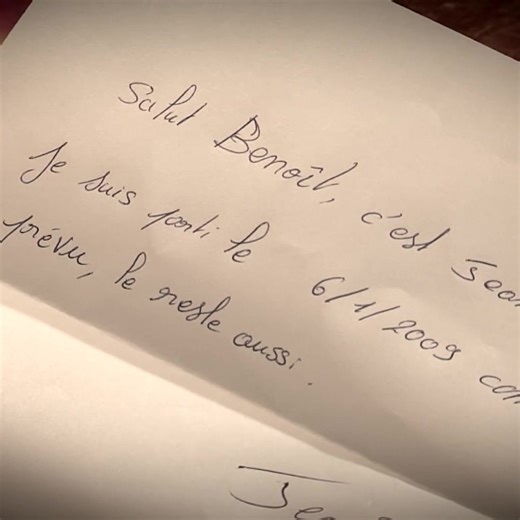 Salut Benoît, c'est Jean
Je suis parti le 6/1/2009 com
prévu, le reste aussi.
Je